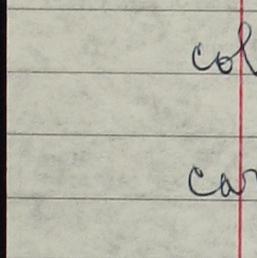 col
car